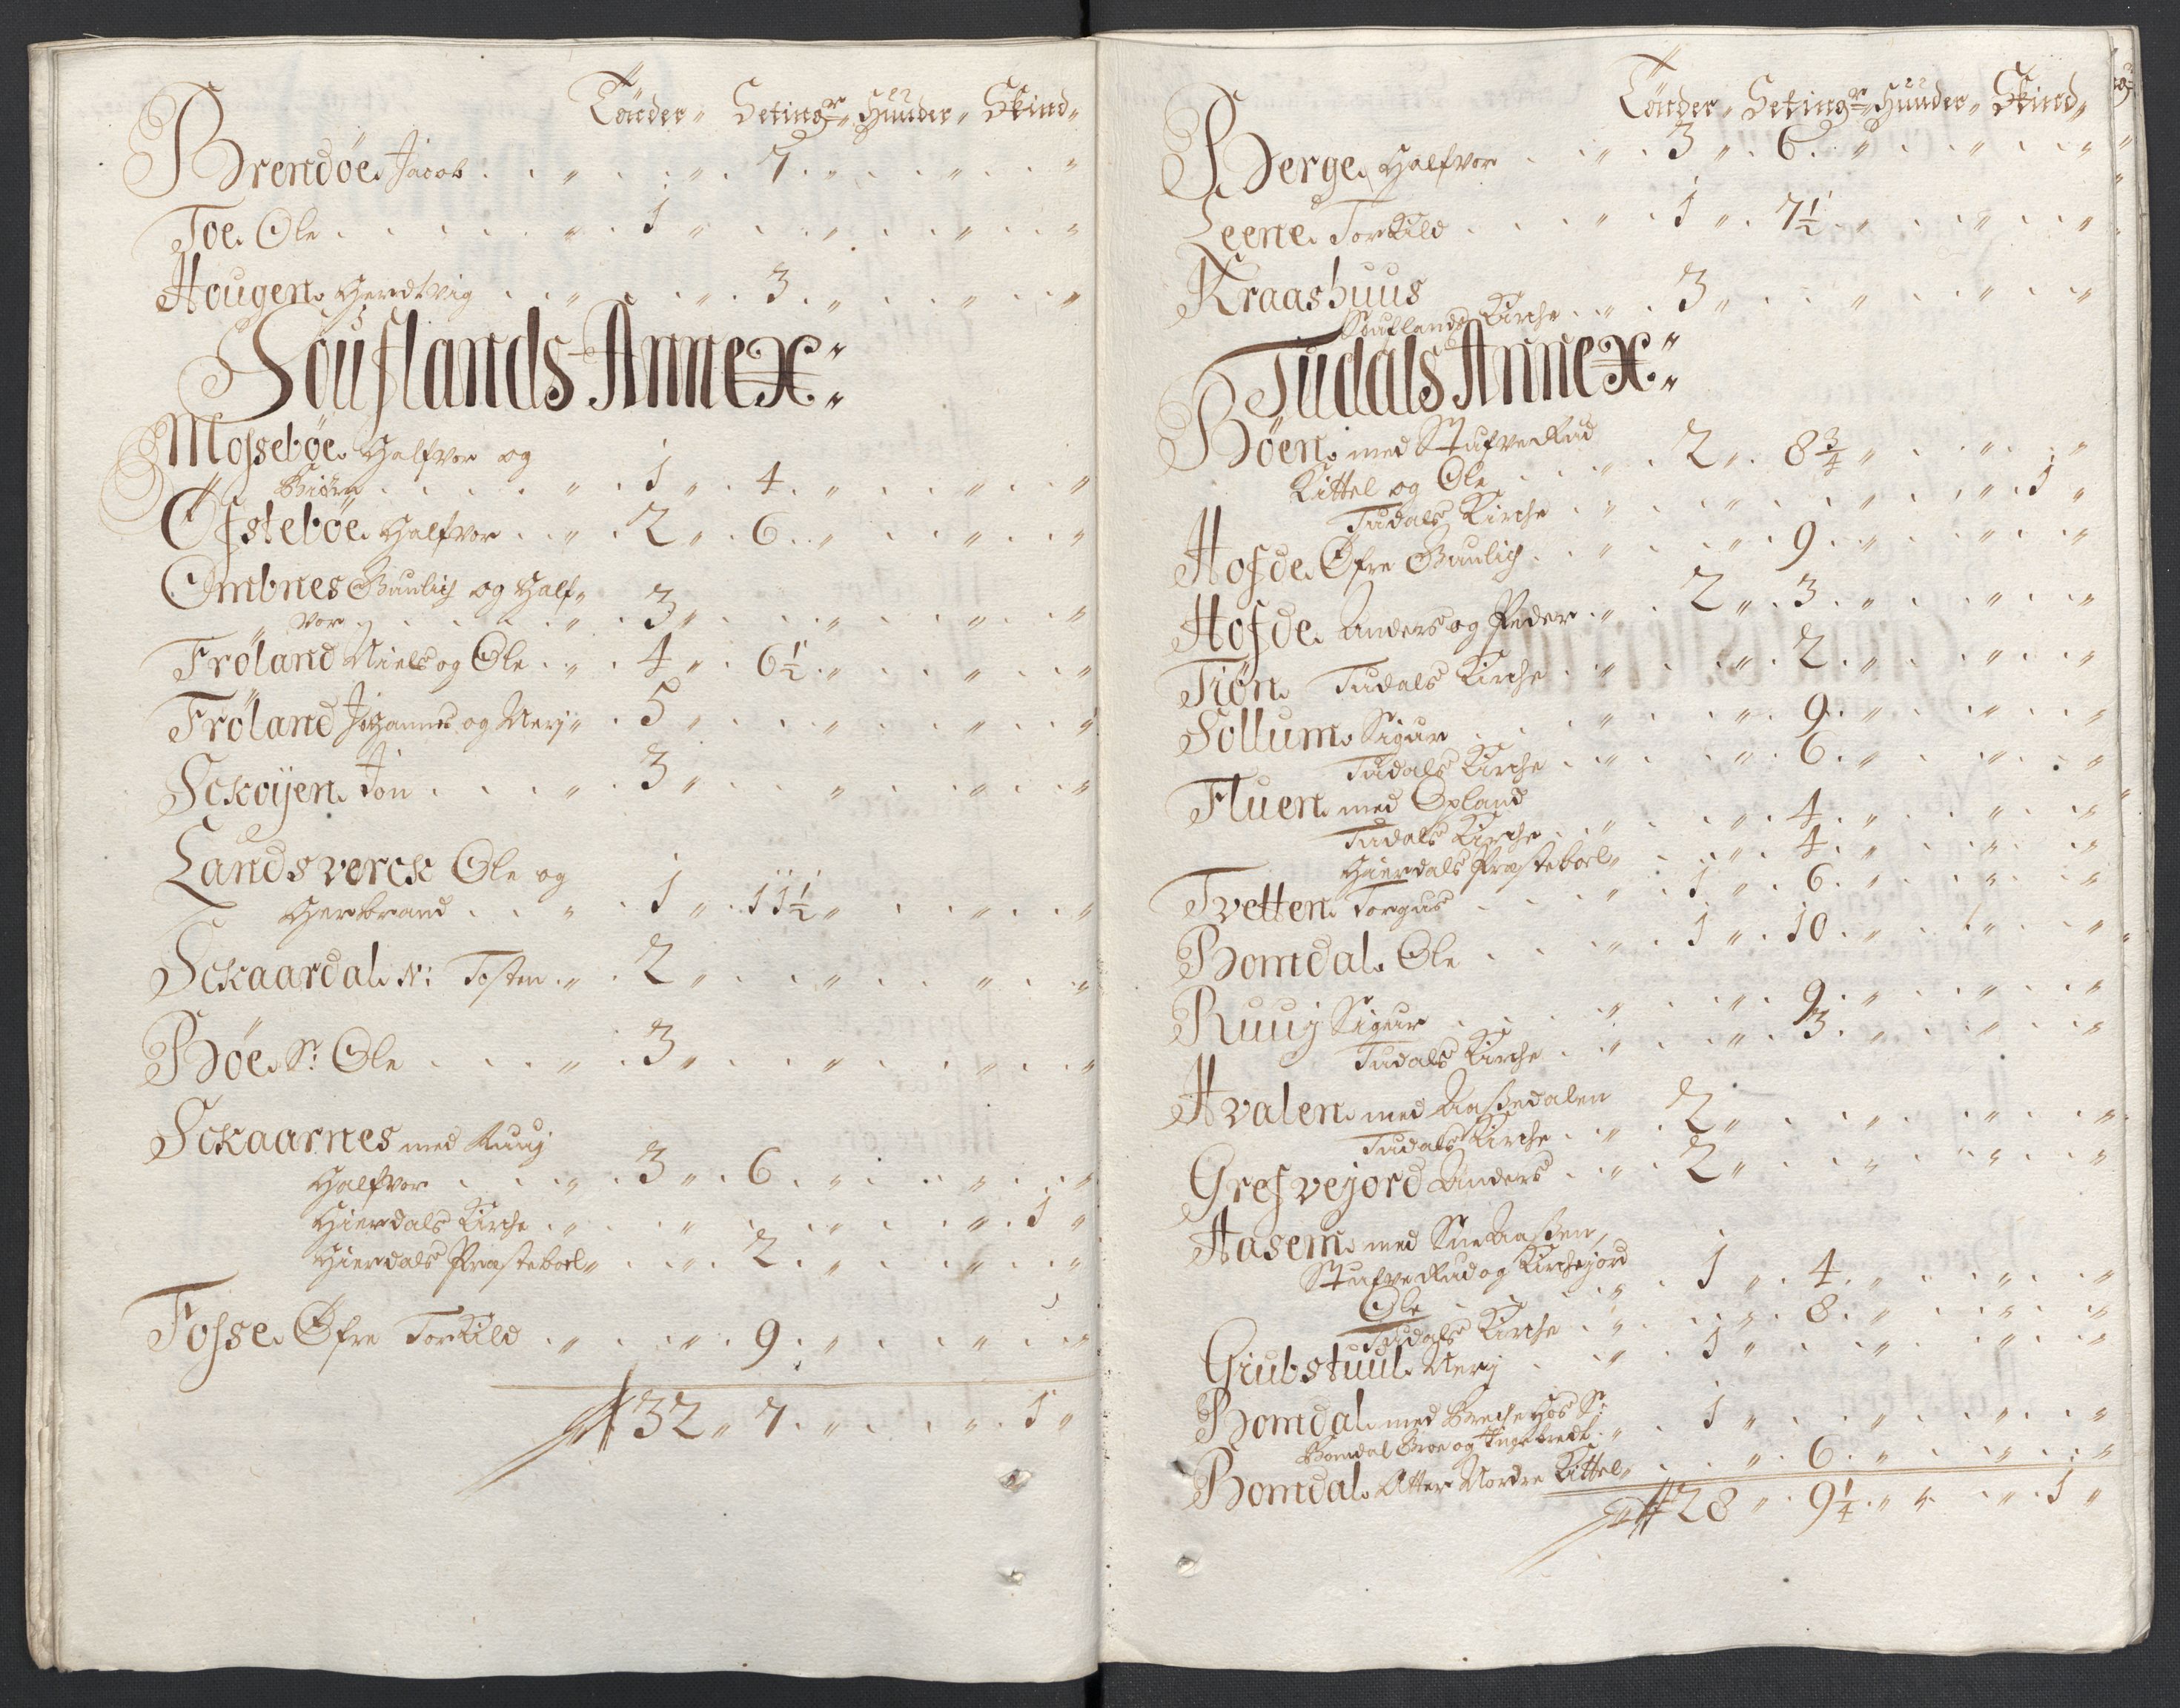 Tönder „ Setingr „ Huuder „ Skind „
Brendöe. Jacob . . „ . . „ . 7 . „ . . „ . . „
Toe. Ole . . . . . „ . 1 „ . . „ . . „ . . „
Hougen. Gerdtvig . . „ . . „ . 3 . „ . . „ . . „
Souflands Annex:
Mossebøe. Halfvor og
Biörn . . . . „ . 1 „ . 4 . „ . . „ . . „
Ofstebøe. Halfvor . . „ . 2 „ . 6 . „ . . „ . . „
Ombnes Gunlich og Half„
vor . . . . . „ . 3 „ . . „ . . „ . . „
Fröland Niels og Ole . „ . 4 „ . 6½ . „ . . „ . . „
Fröland Johannes og Nerj „ . 5 „ . . „ . . „ . . „
Sckoijen. Jon . . . „ . 3 „ . . „ . . „ . . „
Landsverck Ole og
Herbrand . . „ . 1 „ . 11½ „ . . „ . . „
Sckaardal. N: Tosten . „ . 2 „ . . „ . . „ . . „
Bøe. Sr: Ole . . . „ . 3 „ . . „ . . „ . . „
Sckaarnes med Ruuj
Halfvor . . . „ . 3 „ . 6 . „ . . „ . . „
Hierdals Kirche . „ . . „ . . „ . . „ . 1 „
Hierdals Præsteboel „ . . „ . 2 . „ . . „ . . „
Fosse. Øfre Torkild . „ . . „ . 9 . „ . . „ . . „
32 „ 7 . „ . . „ . 1 „
Tönder „ Setingr „ Huuder „ Skind „
Berge. Halfvor . . „ . 3 „ . 6 . „ . . „ . . „
Leene. Torkild . . . „ . 1 „ . 7½ . „ . . „ . . „
Kraashuus
Souflands Kirche . „ . 3 „ . . „ . . „ . . „
Tudals Annex:
Bøen. med Stufverud
Kittel og Ole . . „ . 2 „ . 8¾ „ . . „ . . „
Tudals Kirche . „ . . „ . . „ . . „ . 1 „
Hofde. Øfre Gunlich . „ . . „ . 9 . „ . . „ . . „
Hofde. Anders og Peder . „ . 2 „ . 3 . „ . . „ . . „
Tiön. Tudals Kirche . „ . . „ . 2 . „ . . „ . . „
Sollum. Sigur . . . „ . . „ . 9 . „ . . „ . . „
Tudals Kirche . „ . . „ . 6 . „ . . „ . . „
Fluen. med Opland
Tudals Kirche . „ . . „ . 4 . „ . . „ . . „
Hierdals Præsteboel „ . . „ . 4 . „ . . „ . . „
Tvetten. Torgus . . . „ . 1 „ . 6 . „ . . „ . . „
Bomdal. Ole . . . „ . 1 „ . 10 . „ . . „ . . „
Ruuj Sigur . . . „ . . „ . 9 . „ . . „ . . „
Tudals Kirche . „ . . „ . 3 . „ . . „ . . „
Hvalen. med Aassedalen
Tudals Kirche . „ . 2 „ . . „ . . „ . . „
Grefvejord Anders . „ . 2 „ . . „ . . „ . . „
Aasem. med Aassen,
Stufverud og Kirchejord
Ole . . . „ . 1 „ . 4 . „ . . „ . . „
Tudals Kirche . „ . . „ . 8 . „ . . „ . . „
Giubstuul. Nerj . . „ . 1 „ . . „ . . „ . . „
Bomdal. med Hos Sr:
Bomdal og Ingebredt . „ . 1 „ . . „ . . „ . . „
Bomdal. Atter Nordre Kittel „ . . „ . 6 . „ . . „ . . „
28 „ . 9¼ . „ . . „ . 1 „